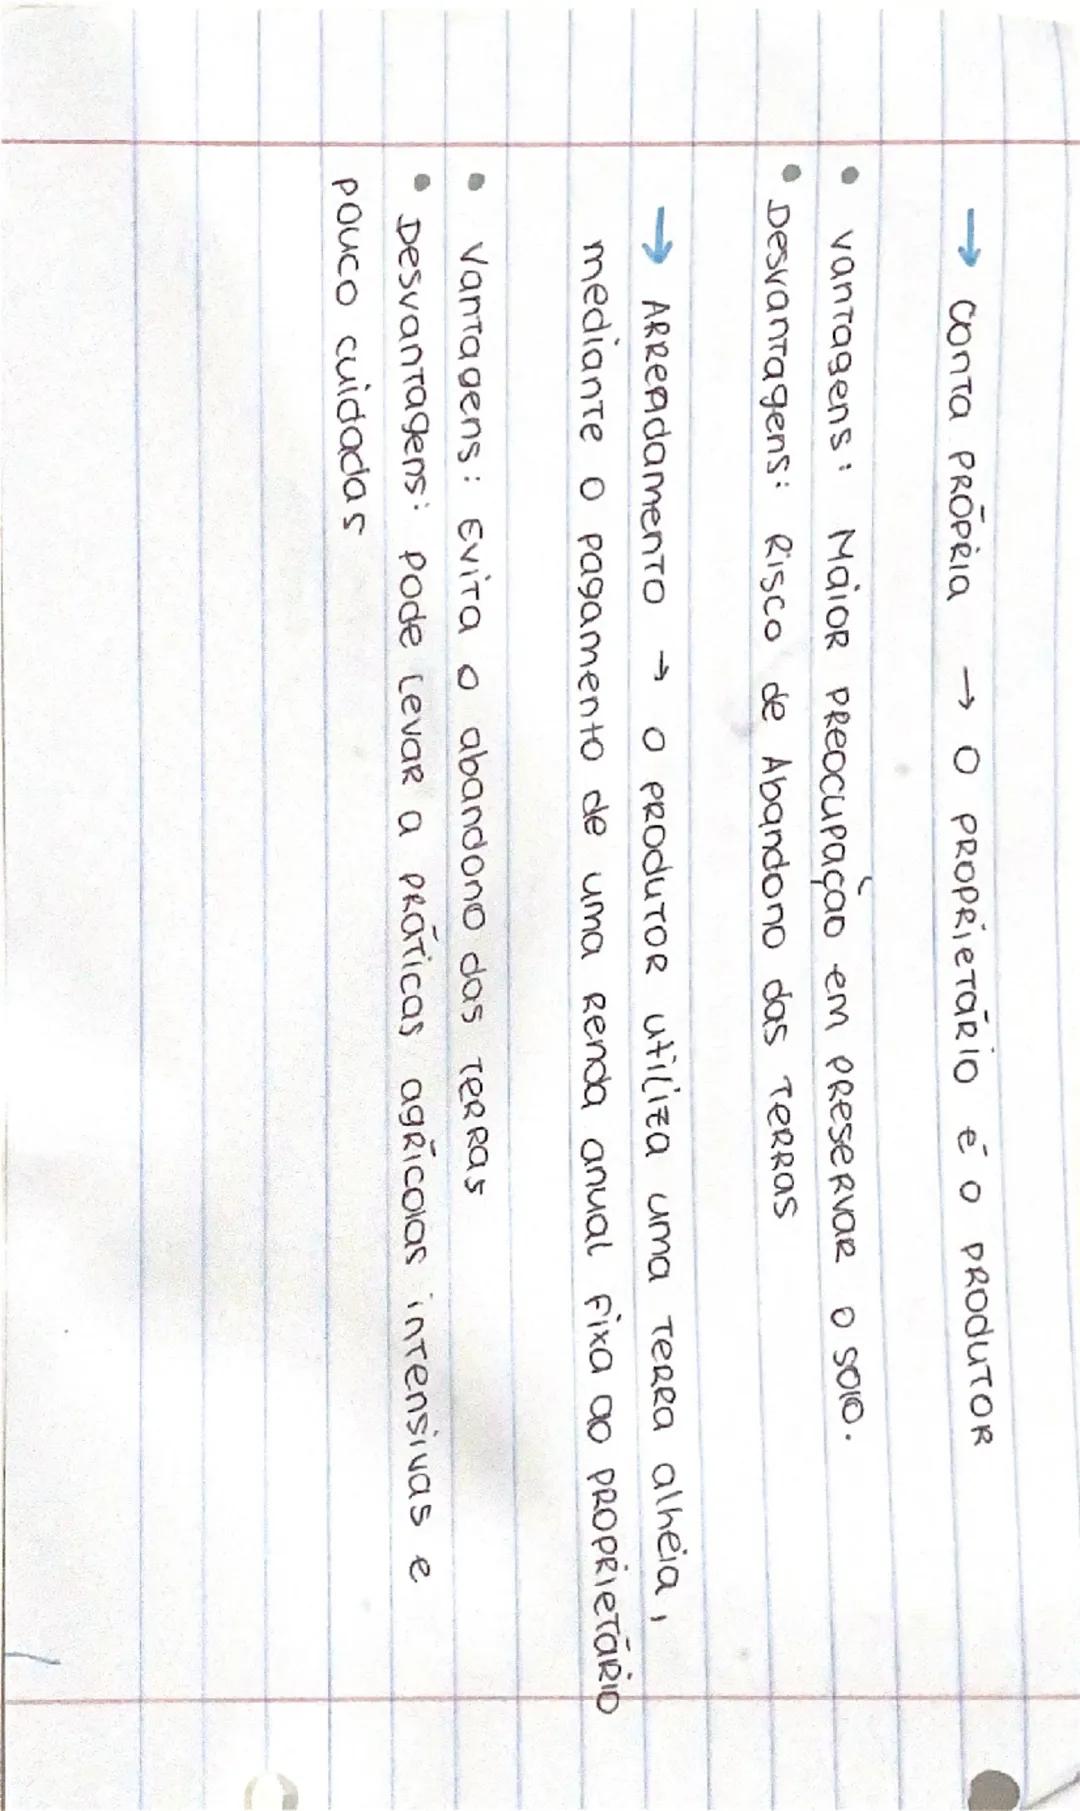 → Conta própria → O proprietário é o produtor
• Vantagens: Maior preocupação em preservar o solo.
• Desvantagens: Risco de Abandono das terras
→ Arrendamento → O produtor utiliza uma terra alheia,
mediante o pagamento de uma renda anual fixa ao proprietário
• Vantagens: Evita o abandono das terras
• Desvantagens: pode levar a práticas agrícolas intensivas e
pouco cuidadas